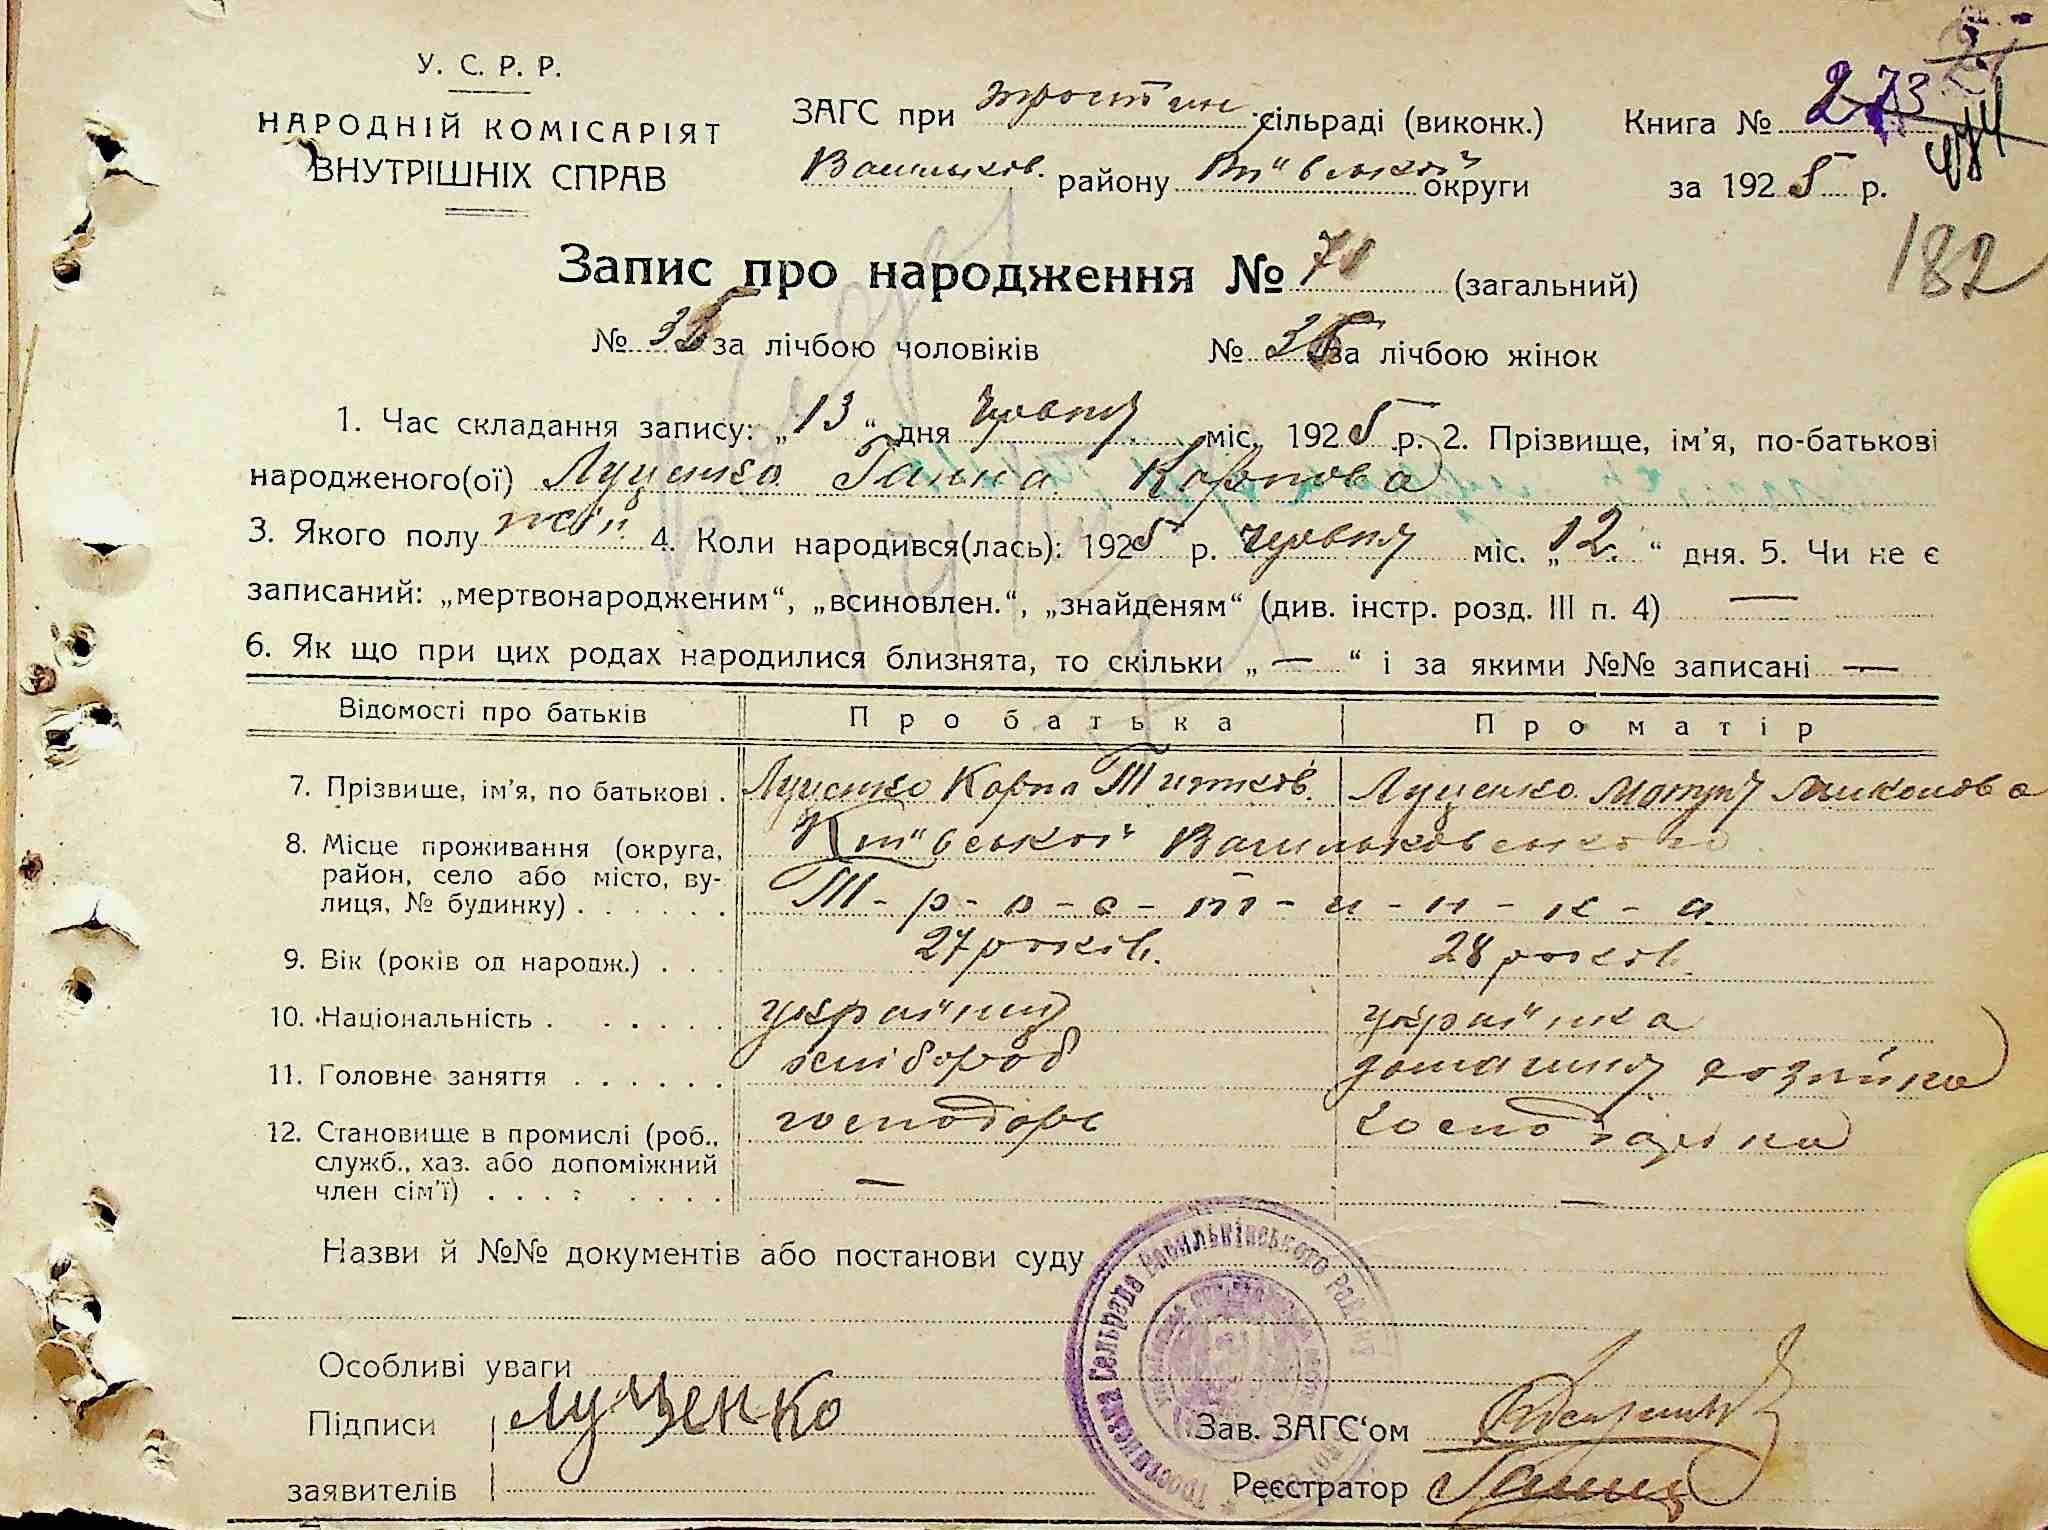 У. С. Р. Р.
НАРОДНІЙ КОМІСАРІЯТ
ВНУТРІШНІХ СПРАВ
ЗАГС при Тростин сільраді (виконк.)
Васильков. району Київської округи
Книга № 273
за 1925 р.
182
Запис про народження № 70 (загальний)
№ 35 за лічбою чоловіків № 35 за лічбою жінок
1. Час складання запису: „13“ дня червня міс. 1925 р. 2. Прізвище, ім'я, по-батькові
народженого(ої) Луценко Ганна Карпова
3. Якого полу жін. 4. Коли народився(лась): 1925 р. червня міс. „12“ дня. 5. Чи не є
записаний: „мертвонародженим“, „всиновлен.“, „знайденям“ (див. інстр. розд. III п. 4) —
6. Як що при цих родах народилися близнята, то скільки „—“ і за якими №№ записані —
Відомості про батьків Про батька Про матір
7. Прізвище, ім'я, по батькові . Луценко Карпо Титков. Луценко Мотря Миколова
8. Місце проживання (округа, Київської Васильковського
район, село або місто, ву- Т-р-о-с-т-и-н-к-а
лиця, № будинку) . . . . . .
9. Вік (років од народж.) . . . 27 років. 28 років.
10. Національність . . . . . . українец українка
11. Головне заняття . . . . . . хлібороб домашня хозяйка
12. Становище в промислі (роб., господарь господарка
служб., хаз. або допоміжний
член сім'ї) . . . . . . . . — —
Назви й №№ документів або постанови суду
Особливі уваги
Підписи Луценко Зав. ЗАГС'ом
заявителів Реєстратор
Тростинська Сельрада Васильківського Району